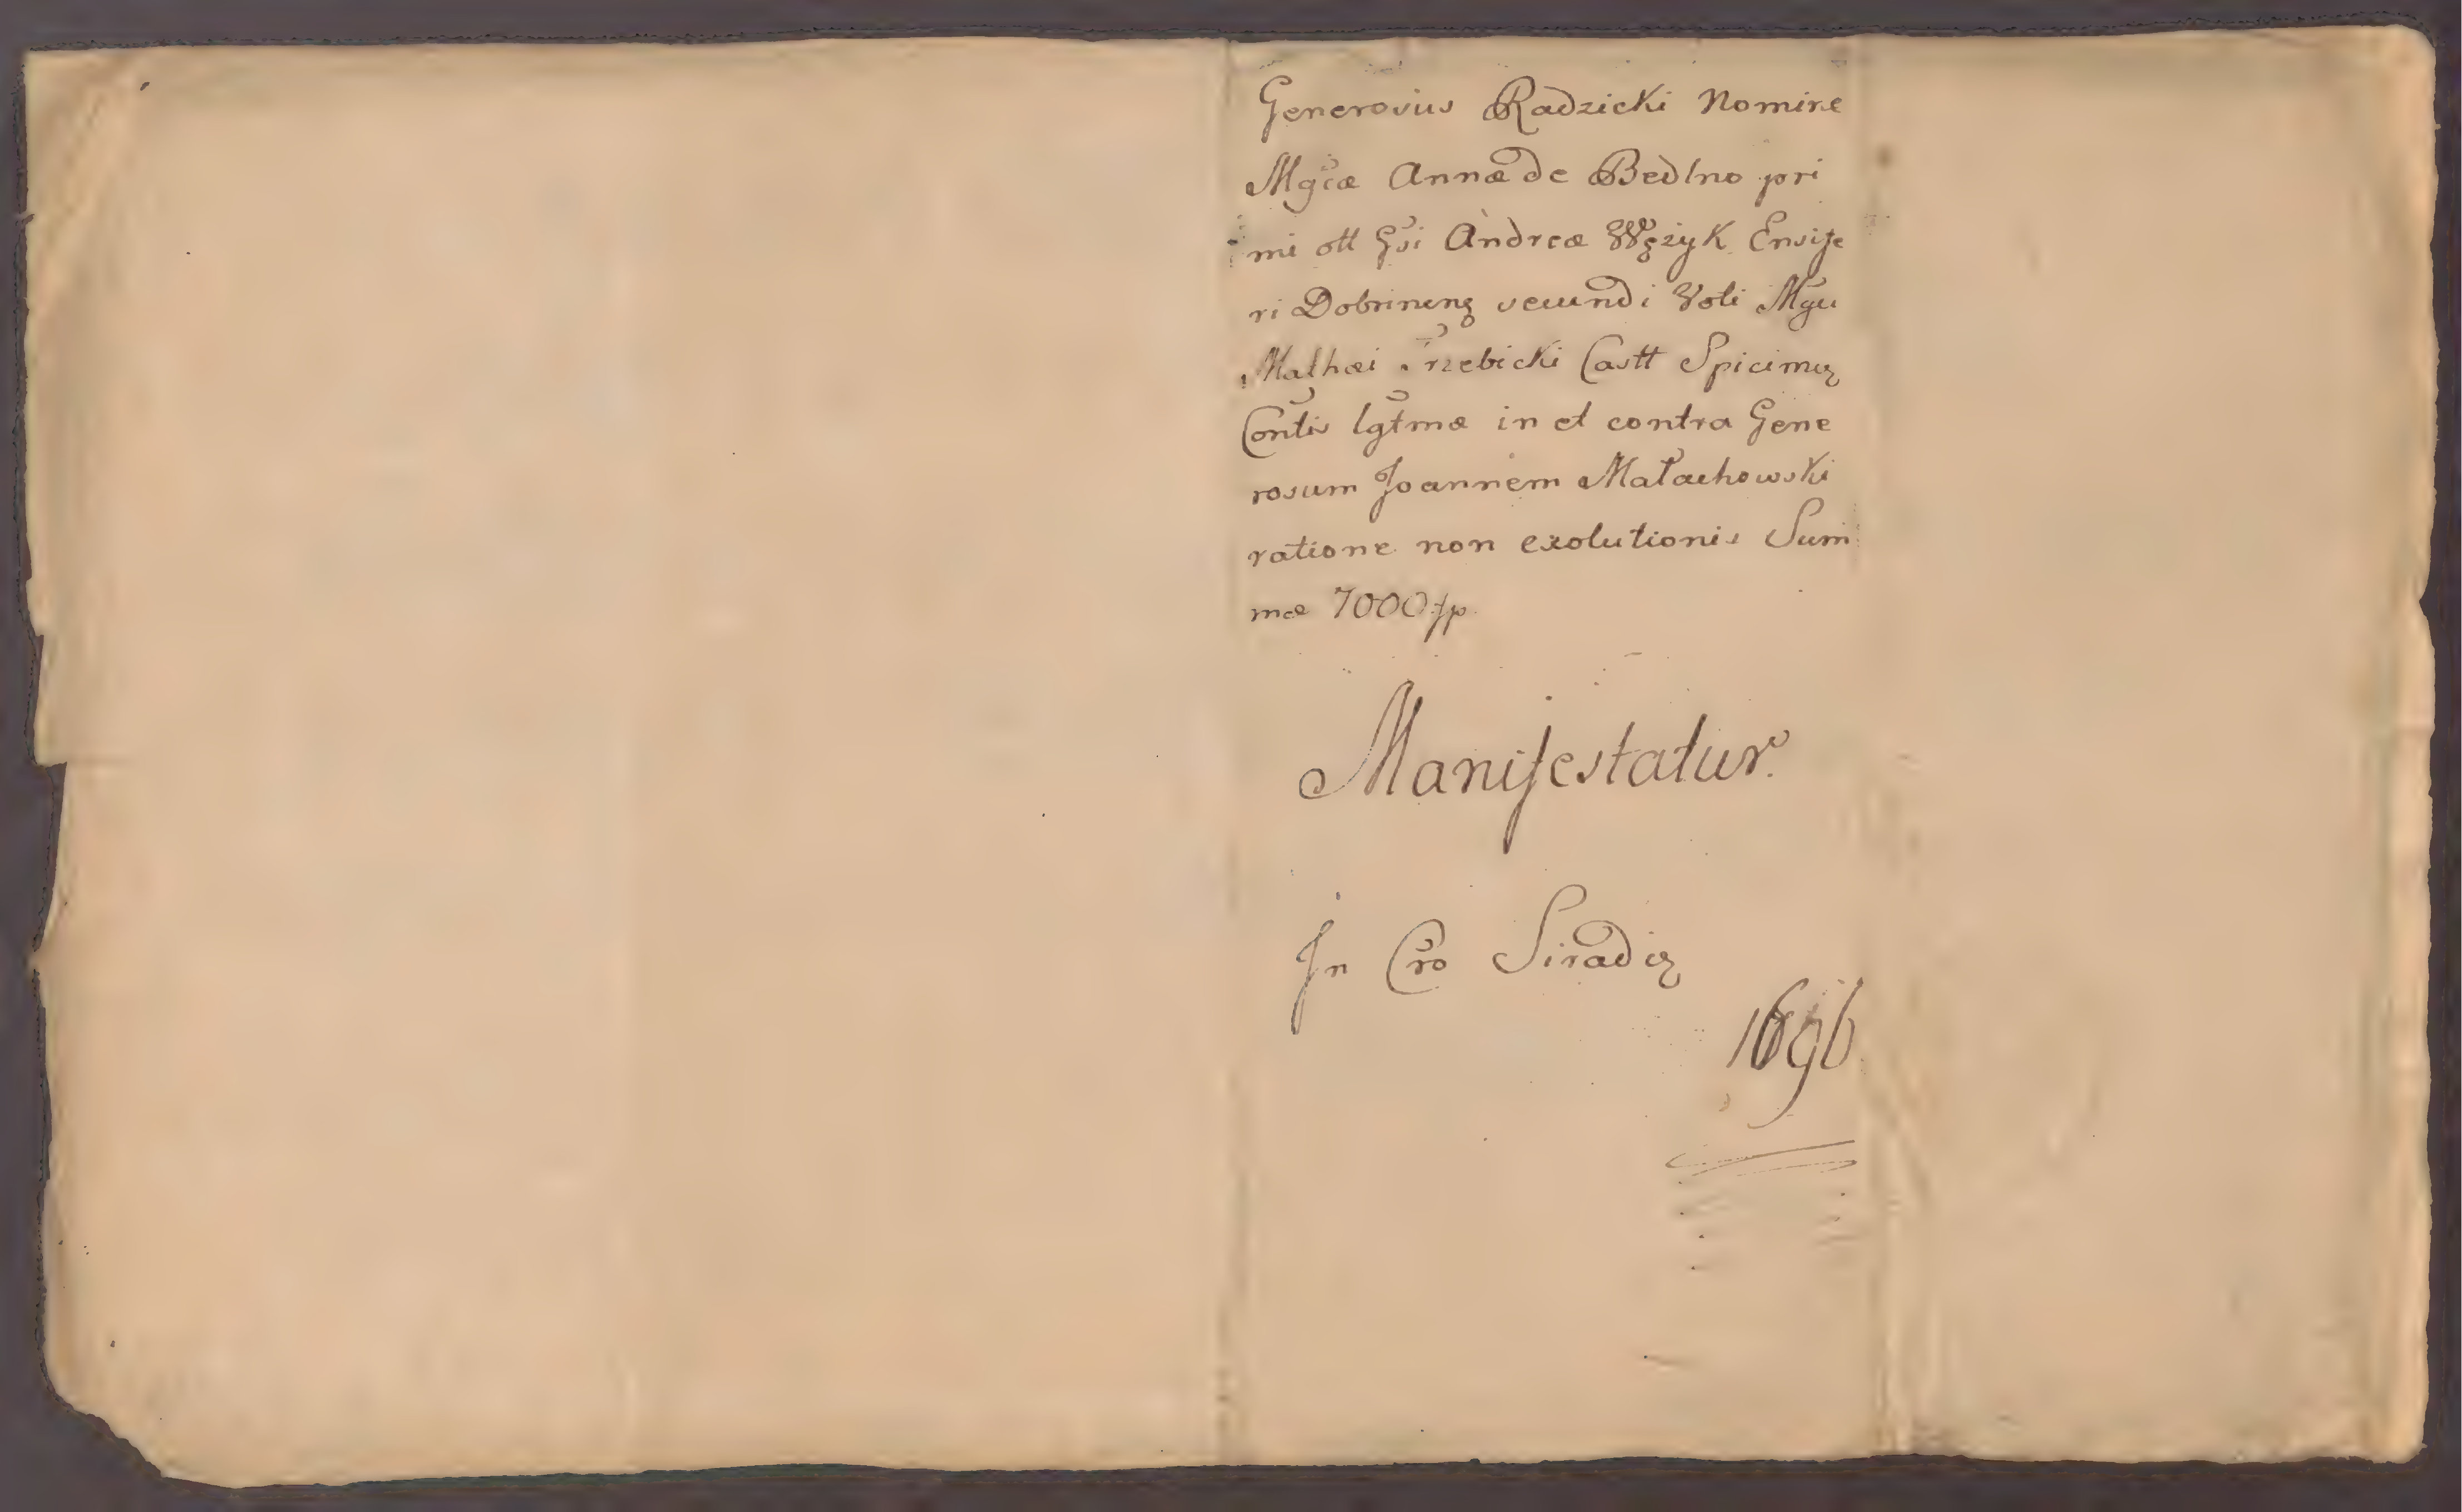 Generosus Radzicki Nomine
Mgcæ Annæ de Bedlno pri
mi ott Gsi Andreæ Wężyk Ensife
ri Dobrinenꝫ secundi Voti Mgci
Mathæi Trzebicki Castt Spicimeꝫ
Contis lgtmæ in et contra Gene
rosum Joannem Małachowski
ratione non exolutionis Sum
mæ 7000 fp.
Manifestatur.
In Cro Siradieꝫ
1696